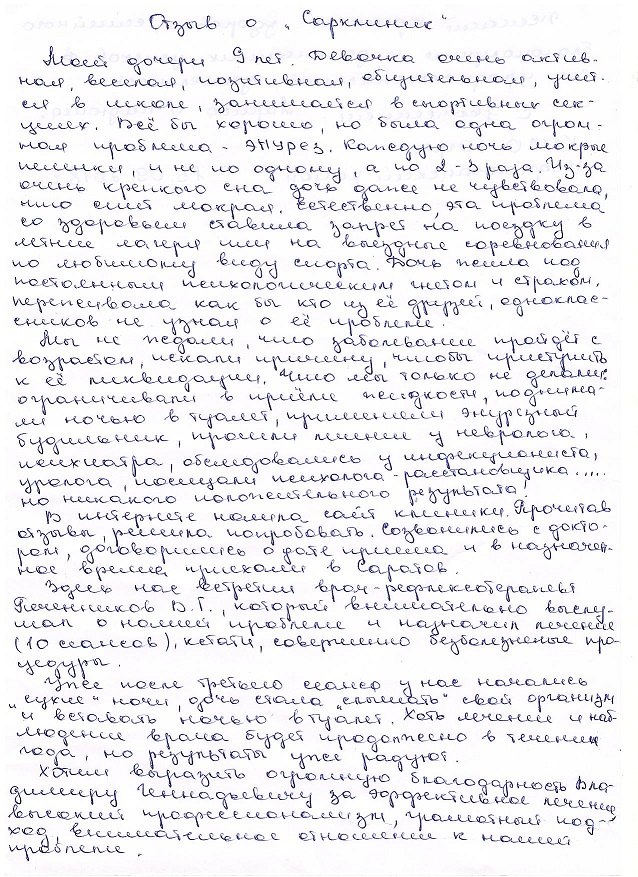 Отзыв о „Сарклиник"
Моей дочери 9 лет. Девочка очень актив-
ная, веселая, позитивная, общительная, учит-
ся в школе, занимается в спортивных сек-
циях. Всё бы хорошо, но была одна огром-
ная проблема - энурез. Каждую ночь мокрые
пеленки, и не по одному, а по 2-3 раза. Из-за
очень крепкого сна дочь даже не чувствовала,
что спит мокрая. Естественно, эта проблема
со здоровьем ставила запрет на поездку в
летние лагеря или на выездные соревнования
по любимому виду спорта. Дочь жила под
постоянным психологическим гнетом и страхом,
переживала как бы кто из её друзей, одноклас-
сников не узнал о её проблеме.
Мы не ждали, что заболевание пройдёт с
возрастом, искали причину, чтобы приступить
к её ликвидации. Что мы только не делали:
ограничивали в приёме жидкости, поднима-
ли ночью в туалет, применяли энурезный
будильник, прошли лечение у невролога,
психиатра, обследовались у инфекциониста,
уролога, посещали психолога-расстановщика.....
но никакого положительного результата!
В интернете нашла сайт клиники. Прочитав
отзывы, решила попробовать. Созвонились с докто-
ром, договорились о дате приема и в назначен-
ное время приехали в Саратов.
Здесь нас встретил врач-рефлексотерапевт
Печенников В.Г., который внимательно выслу-
шал о нашей проблеме и назначил лечение
(10 сеансов), кстати, совершенно безболезненные про-
цедуры.
Уже после третьего сеанса у нас начались
„сухие" ночи, дочь стала „слышать" свой организм
и вставать ночью в туалет. Хоть лечение и наб-
людение врача будет продолжено в течении
года, но результаты уже радуют.
Хотим выразить огромную благодарность Вла-
димиру Геннадьевичу за эффективное лечение,
высокий профессионализм, грамотный под-
ход, внимательное отношение к нашей
проблеме.